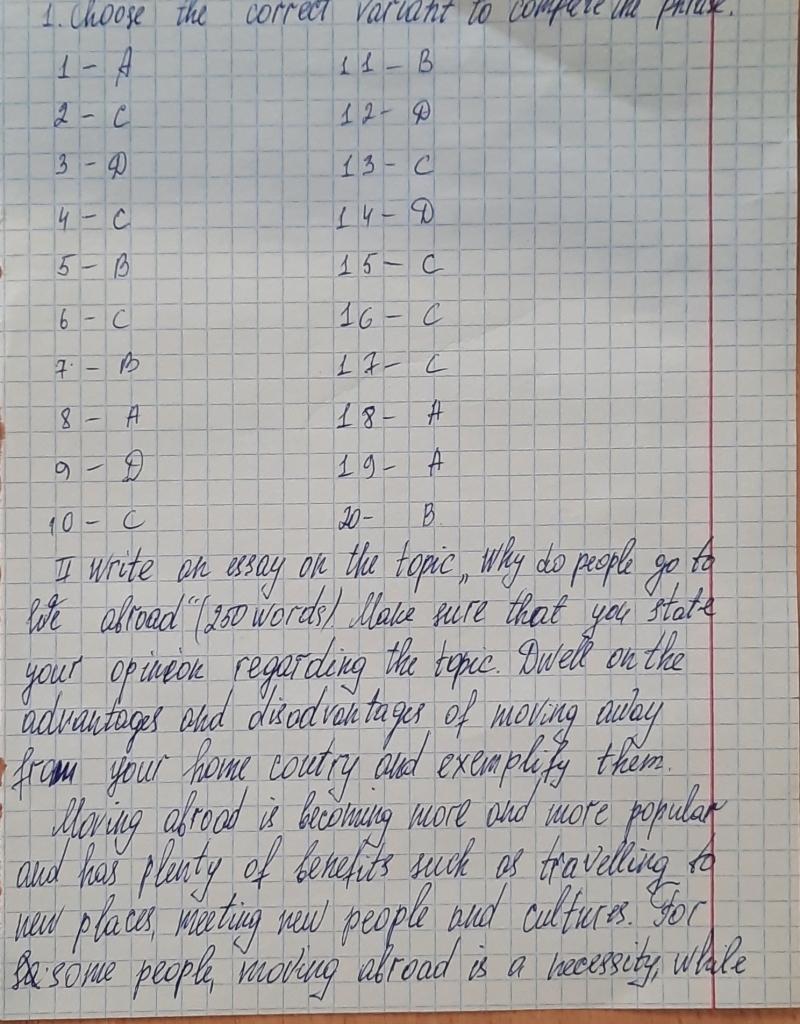 1. Choose the correct variant to compare the phrase.
1 - A 11 - B
2 - C 12 - D
3 - D 13 - C
4 - C 14 - D
5 - B 15 - C
6 - C 16 - C
7 - B 17 - C
8 - A 18 - A
9 - D 19 - A
10 - C 20 - B
II Write an essay on the topic „Why do people go to
live abroad" (250 words) Make sure that you state
your opinion regarding the topic. Dwell on the
advantages and disadvantages of moving away
from your home coutry and exemplify them.
Moving abroad is becoming more and more popular
and has plenty of benefits such as travelling to
new places, meeting new people and cultures. For
some people, moving abroad is a necessity, while